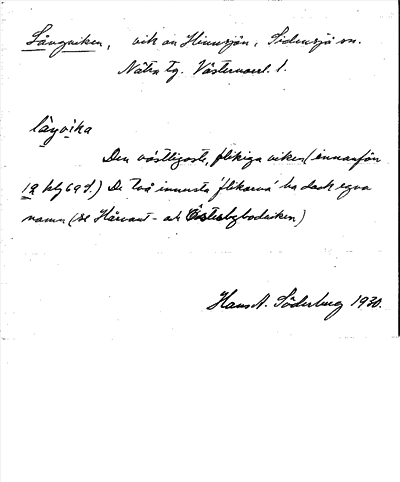 Långviken, vik av Hinnsjön, Sidensjö sn.
Nätra tg. Västernorrl. l.
låŋvika
Den västligaste, flikiga viken (innanför
12 höj 69 f.) De två innersta 'flikarna' ha dock egna
namn (se Hårvant- och Österbybodviken)
Hans A. Söderberg 1930.